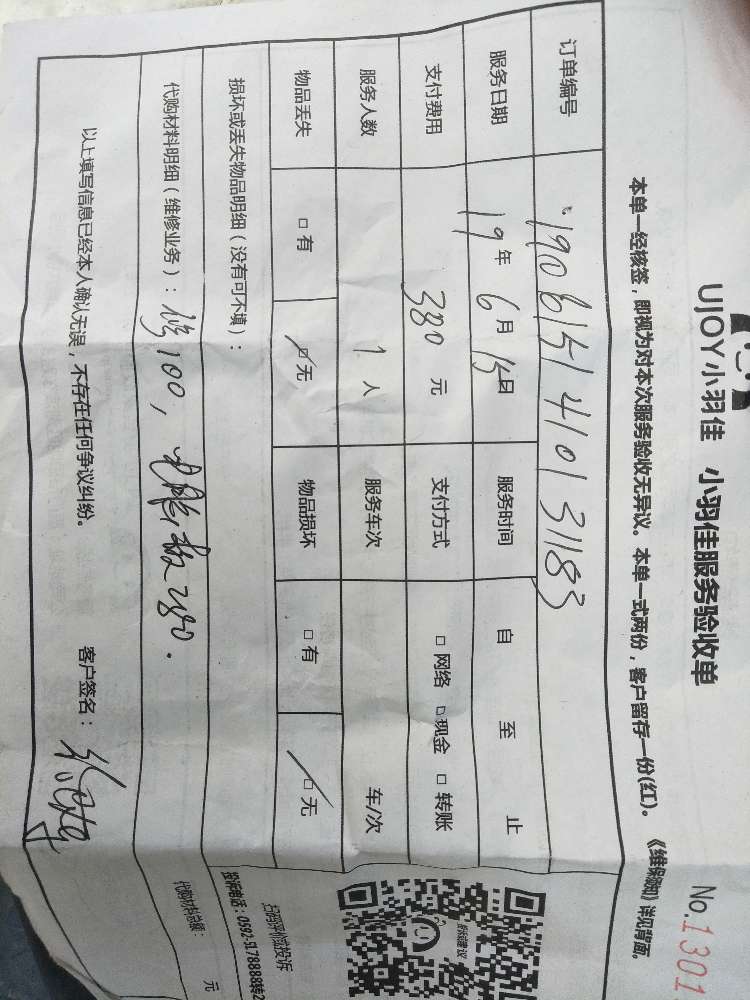 UJOY小羽佳 小羽佳服务验收单
No.1301
本单一经核签，即视为对本次服务验收无异议。本单一式两份，客户留存一份(红)。《维保须知》详见背面。
订单编号 1906151410131183
服务日期 19年 6月 15日 服务时间 自 至 止
支付费用 380 元 支付方式 □ 网络 □ 现金 □ 转账
服务人数 1 人 服务车次 车/次
物品丢失 □ 有 □ 无 物品损坏 □ 有 □ 无
损坏或丢失物品明细（没有可不填）：
代购材料明细（维修业务）：修100, 280.
代购材料总额： 元
以上填写信息已经本人确认无误，不存在任何争议纠纷。 客户签名：
投诉建议
扫码评价或投诉
投诉电话：0592-5178888转2